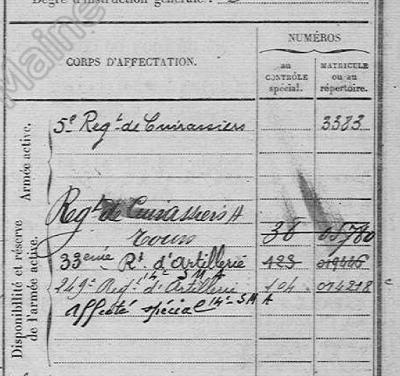 Degré d'instruction générale :
Maine
NUMÉROS
CORPS D'AFFECTATION.
au CONTRÔLE spécial.
MATRICULE ou au répertoire.
Armée active.
5e Regt de Cuirassiers 3383
Disponibilité et réserve de l'armée active.
Regt de Cuirassiers A
Tours 36 05780
33eme Rt d'Artillerie 123
14e S M A
249e Regt d'Artillerie 104 014218
Affecté spécial 14e S M A